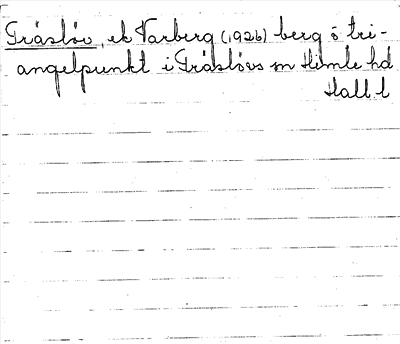 Träslöv, ek Varberg (1926) berg o tri-
angelpunkt i Träslövs sn Himle hd
Hall. l